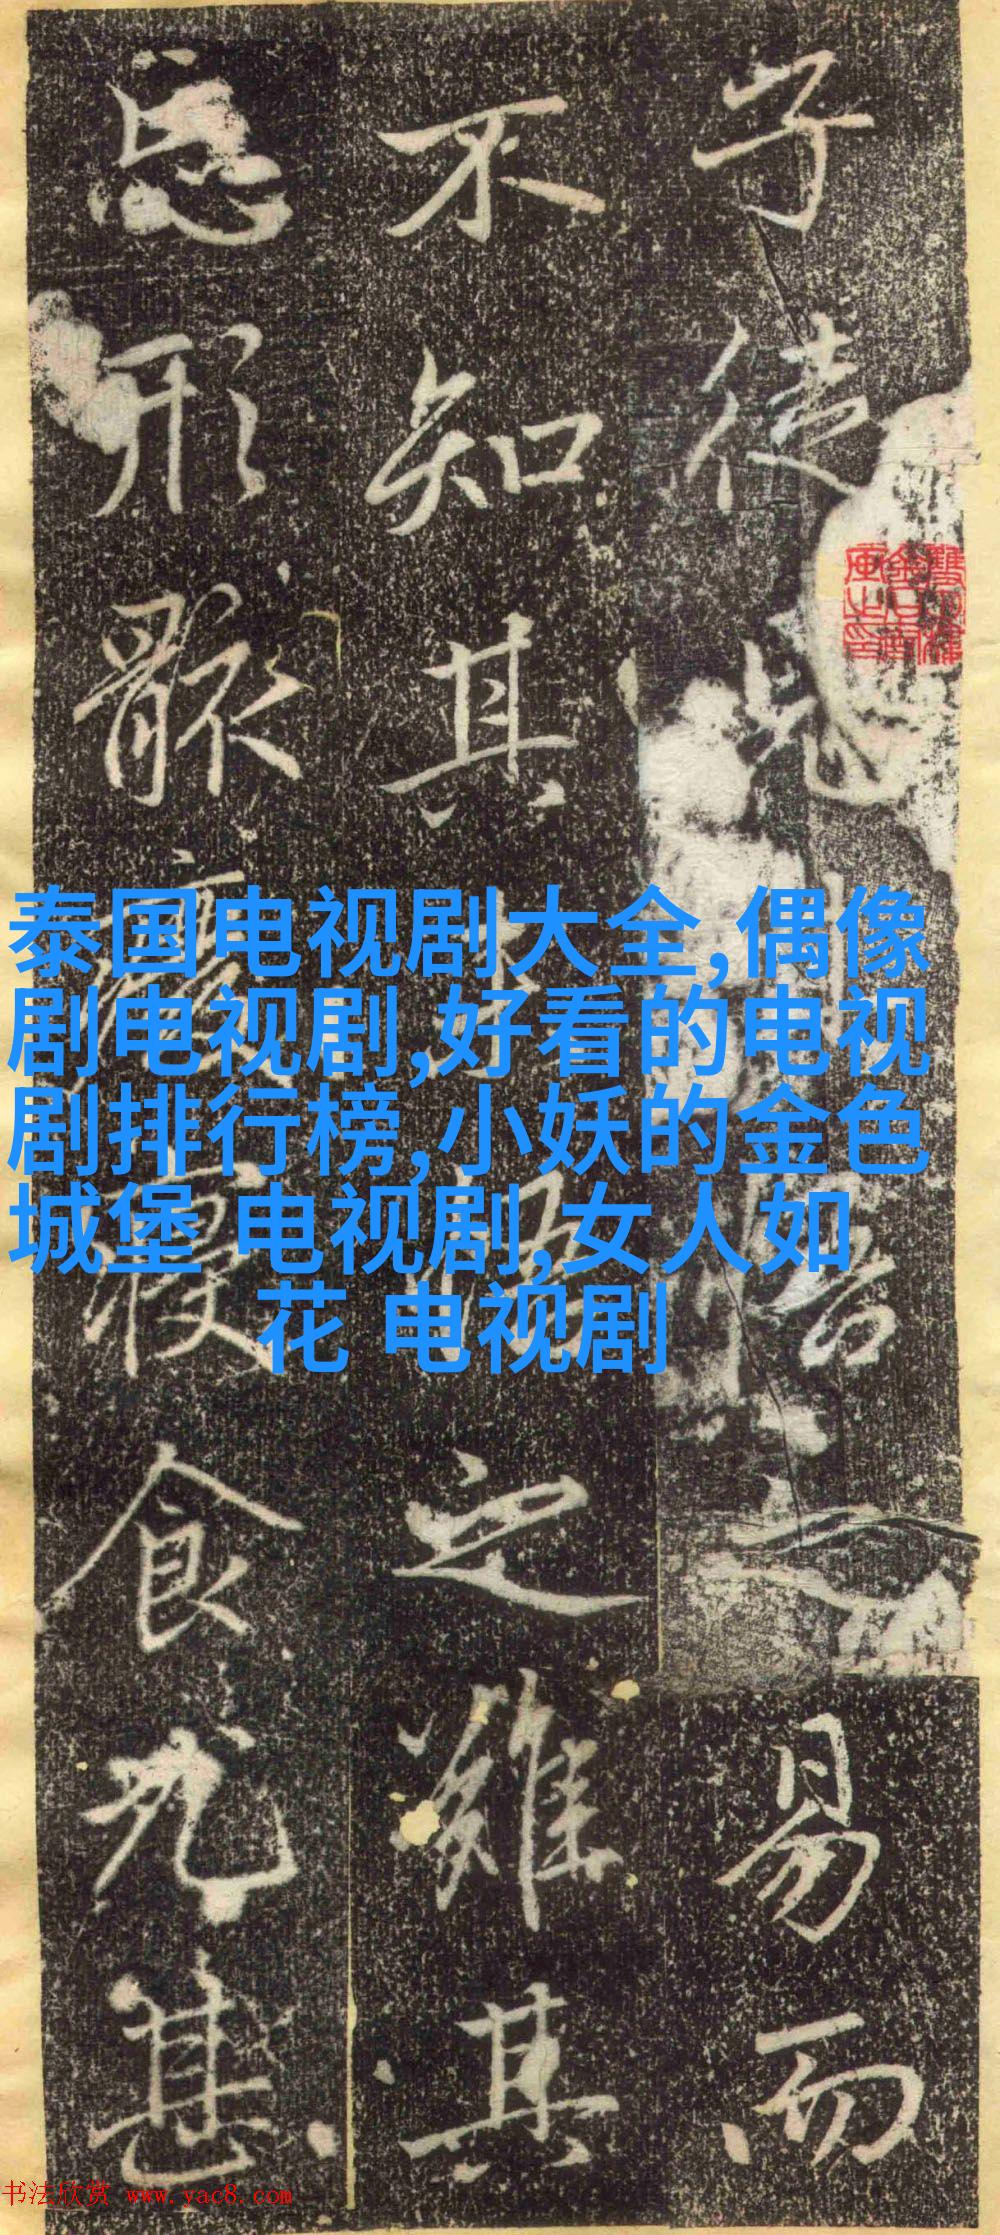 子徒見習之易而
不知其之難其
忘形骸廢寢食尤甚
泰国电视剧大全,偶像
剧电视剧,好看的电视
剧排行榜,小妖的金色
城堡 电视剧,女人如
花 电视剧
书法欣赏 www.yac8.com